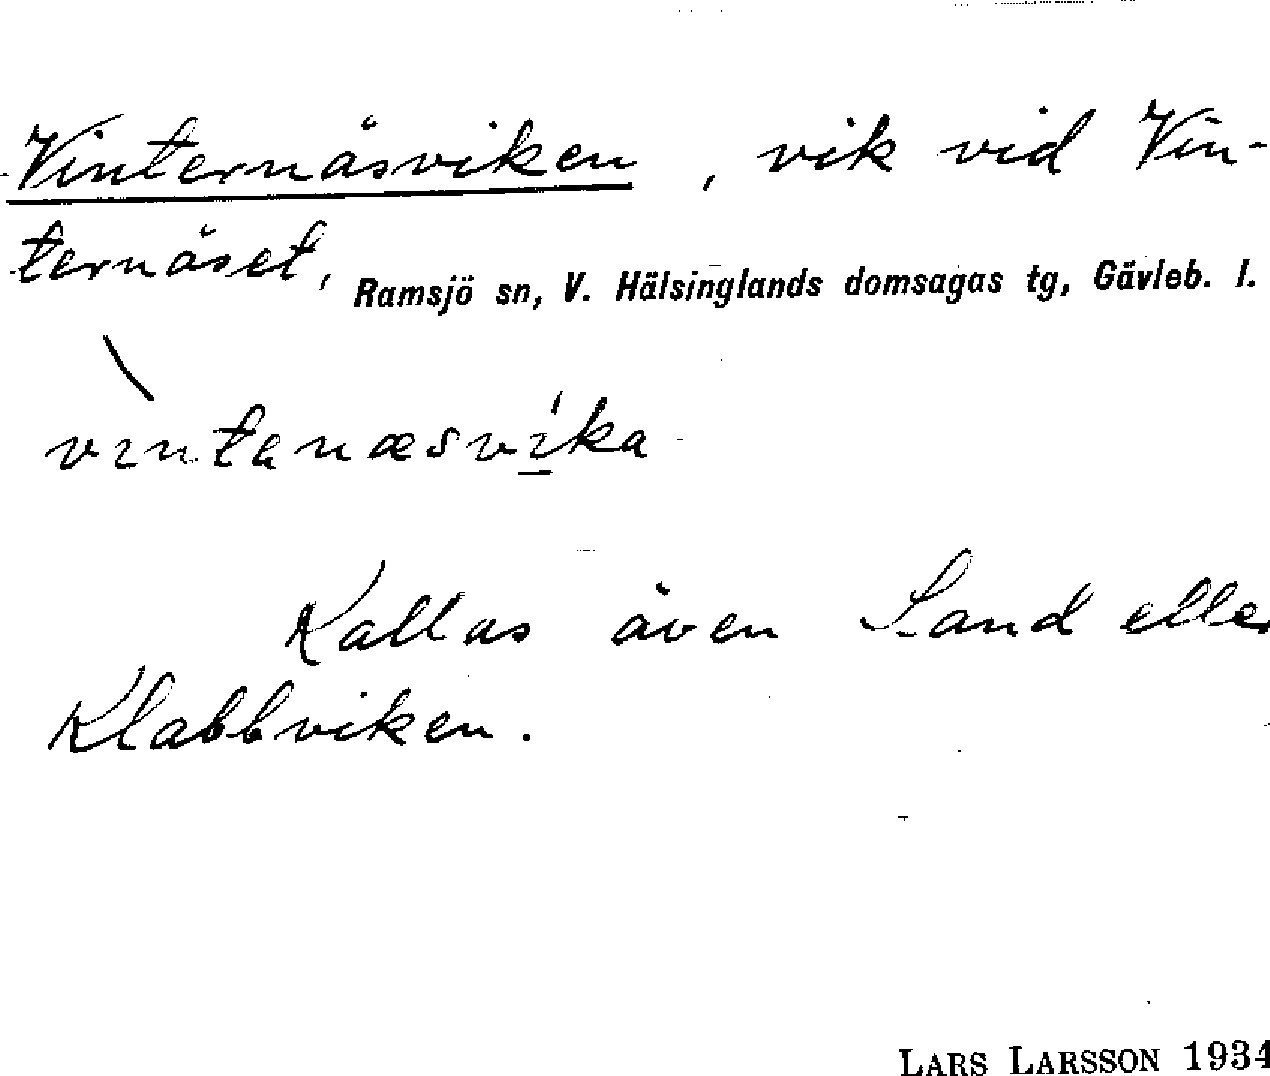 Vinternäsviken, vik vid Vin-
ternäset, Ramsjö sn, V. Hälsinglands domsagas tg, Gävleb. l.
vıntanæsví̲ka
Kallas även Sand eller
Klabbviken.
LARS LARSSON 1934